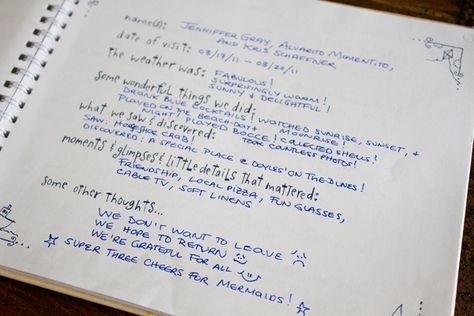 name(s): JENNIFFER GRAY, ALVARITO MOMENTITO,
AND KRIS SCHAFFNER
date of visit: 08/19/11 - 08/20/11
the weather was: FABULOUS!
SURPRISINGLY WARM!
SUNNY & DELIGHTFUL!
some wonderful things we did:
DRANK BLUE COCKTAILS! WATCHED SUNRISE, SUNSET, &
PLAYED ON THE BEACH DAY & MOONRISE!
NIGHT! PLAYED BOCCE! COLLECTED SHELLS!
what we saw & discovered: TOOK COUNTLESS PHOTOS!
SAW: HORSESHOE CRAB!
DISCOVERED: A SPECIAL PLACE @ "ON THE DUNES!
moments & glimpses & little details that mattered:
FRIENDSHIP, LOCAL PIZZA, FUN GLASSES,
CABLE TV, SOFT LINENS
some other thoughts...
WE DON'T WANT TO LEAVE
WE HOPE TO RETURN
WE'RE GRATEFUL FOR ALL
SUPER THREE CHEERS FOR MERMAIDS!